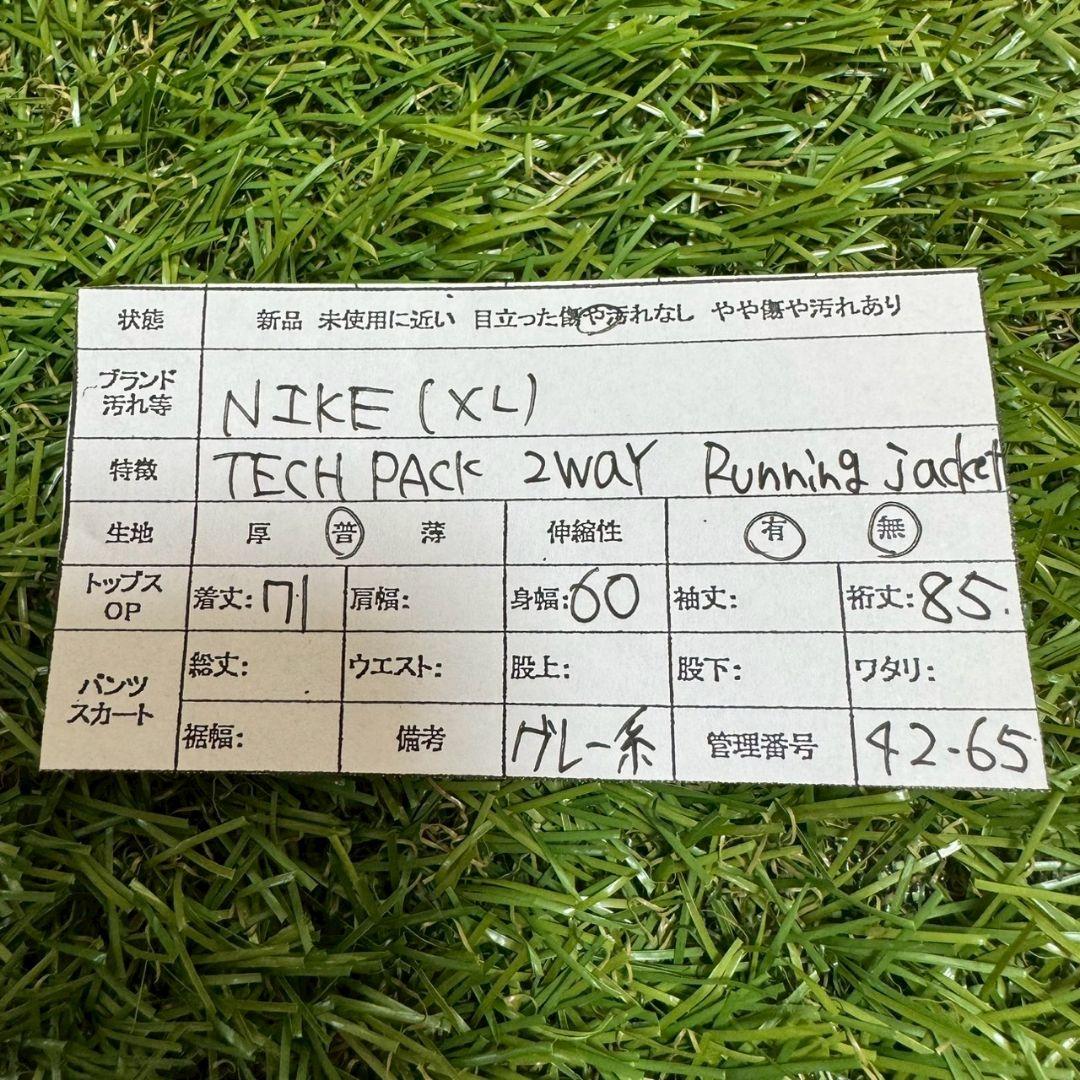 状態 新品 未使用に近い 目立った傷や汚れなし やや傷や汚れあり
ブランド
汚れ等 NIKE (XL)
特徴 TECH PACK 2WAY Running jacket
生地 厚 普 薄 伸縮性 有 無
トップス
OP 着丈:71 肩幅: 身幅:60 袖丈: 裄丈:85.
パンツ
スカート
総丈: ウエスト: 股上: 股下: ワタリ:
裾幅: 備考 グレー系 管理番号 42-65